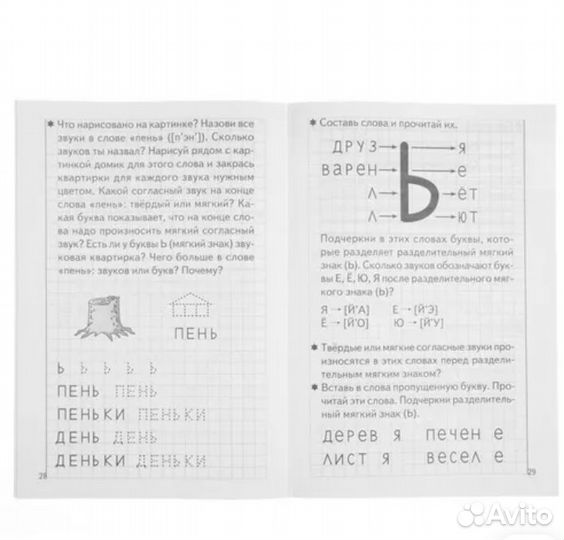 ✷ Что нарисовано на картинке? Назови все
звуки в слове «пень» ([п'эн']). Сколько
звуков ты назвал? Нарисуй рядом с кар-
тинкой домик для этого слова и закрась
квартирки для каждого звука нужным
цветом. Какой согласный звук на конце
слова «пень»: твёрдый или мягкий? Ка-
кая буква показывает, что на конце сло-
ва надо произносить мягкий согласный
звук? Есть ли у буквы Ь (мягкий знак) зву-
ковая квартирка? Чего больше в слове
«пень»: звуков или букв? Почему?
ПЕНЬ
Ь Ь Ь Ь Ь
ПЕНЬ ПЕНЬ
ПЕНЬКИ ПЕНЬКИ
ДЕНЬ ДЕНЬ
ДЕНЬКИ ДЕНЬКИ
28
✷ Составь слова и прочитай их.
ДРУЗ → Ь → Я
ВАРЕН → Ь → Е
Л → Ь → ЁТ
Л → Ь → ЮТ
Подчеркни в этих словах буквы, кото-
рые разделяет разделительный мягкий
знак (Ь). Сколько звуков обозначают бук-
вы Е, Ё, Ю, Я после разделительного мяг-
кого знака (Ь)?
Я → [Й'А] Е → [Й'Э]
Ё → [Й'О] Ю → [Й'У]
✷ Твёрдые или мягкие согласные звуки про-
износятся в этих словах перед раздели-
тельным мягким знаком?
✷ Вставь в слова пропущенную букву. Про-
читай эти слова. Подчеркни разделитель-
ный мягкий знак (Ь).
ДЕРЕВ Я ПЕЧЕН Е
ЛИСТ Я ВЕСЕЛ Е
29
Avito